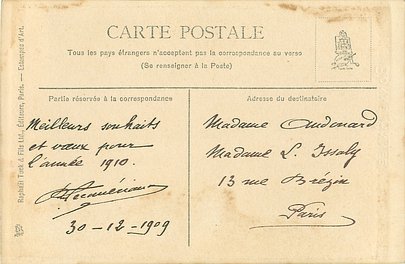 CARTE POSTALE
Tous les pays étrangers n'acceptent pas la correspondance au verso
(Se renseigner à la Poste)
Partie réservée à la correspondance
Adresse du destinataire
Meilleurs souhaits
et vœux pour
l'année 1910.
30-12-1909
Madame Audouard
Madame L. Issaly
13 rue Brézin
Paris
Raphaël Tuck & Fils Ltd., Éditeurs, Paris. — Estampes d'Art.